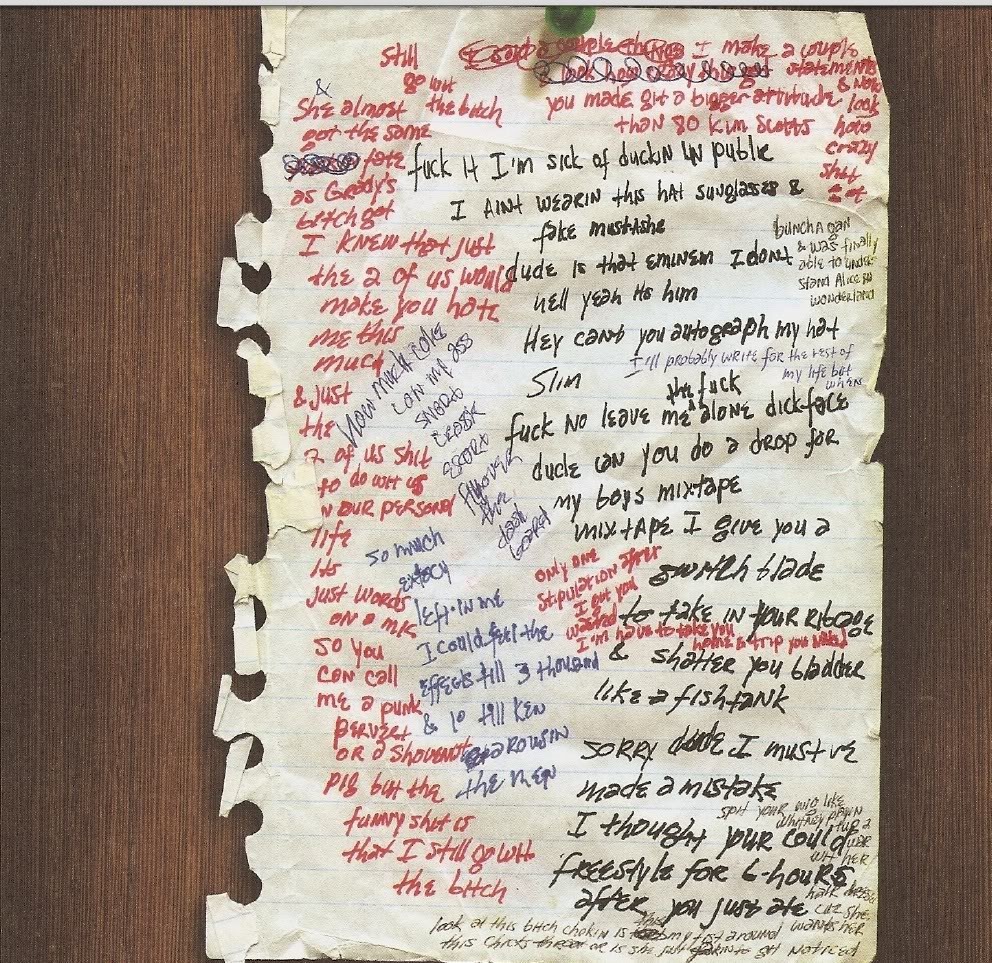 Still
go wit
&
She almost the bitch
got the same
fate
as Grady's
bitch got
I KNEW that just
the 2 of us would
make you hate
me this
much
& just
the
2 of us shit
to do wit us
in our personal
life
its
just words
on a mic
so you
can call
me a punk
pervert
or a shovenist
pig but the
funny shit is
that I still go wit
the bitch
I said a couple things I make a couple
look how crazy shit got statements
& now
you made git a bigger attitude look
than 80 Kim Scotts how
crazy
shit
got
fuck it I'm sick of duckin UN public
I AINT WEARIN this hat sunglasses &
fake mustashe
dude is that eminem I dont
hell yeah its him
Hey cant you autograph my hat
Slim
the fuck
fuck NO leave me alone dickface
dude can you do a drop for
my boys mixtape
mixtape I give you a
switch blade
to take in your Ribcage
& shatter you bladder
like a fishtank
SORRY dude I must ve
made a mistake
I thought your could
freestyle for 6-hours
after you just ate
bunch again
& was finally
able to under
stand Alice in
wonderland
I'll probably write for the rest of
my life but
when
How much coke
can my ass
snort
crack
escort
all over
the
dash
board
so much
extacy
left in me
I could feel the
effects till 3 thousand
& 10 till KEN
arousin
the men
only one
stipulation after
I got you
I'm have to take you
home & trip you
split your wig like
whitney
wit her
hair
cuz she
wants her
look at this bitch chokin is this my fist around
this chicks throat or is she just to git noticed